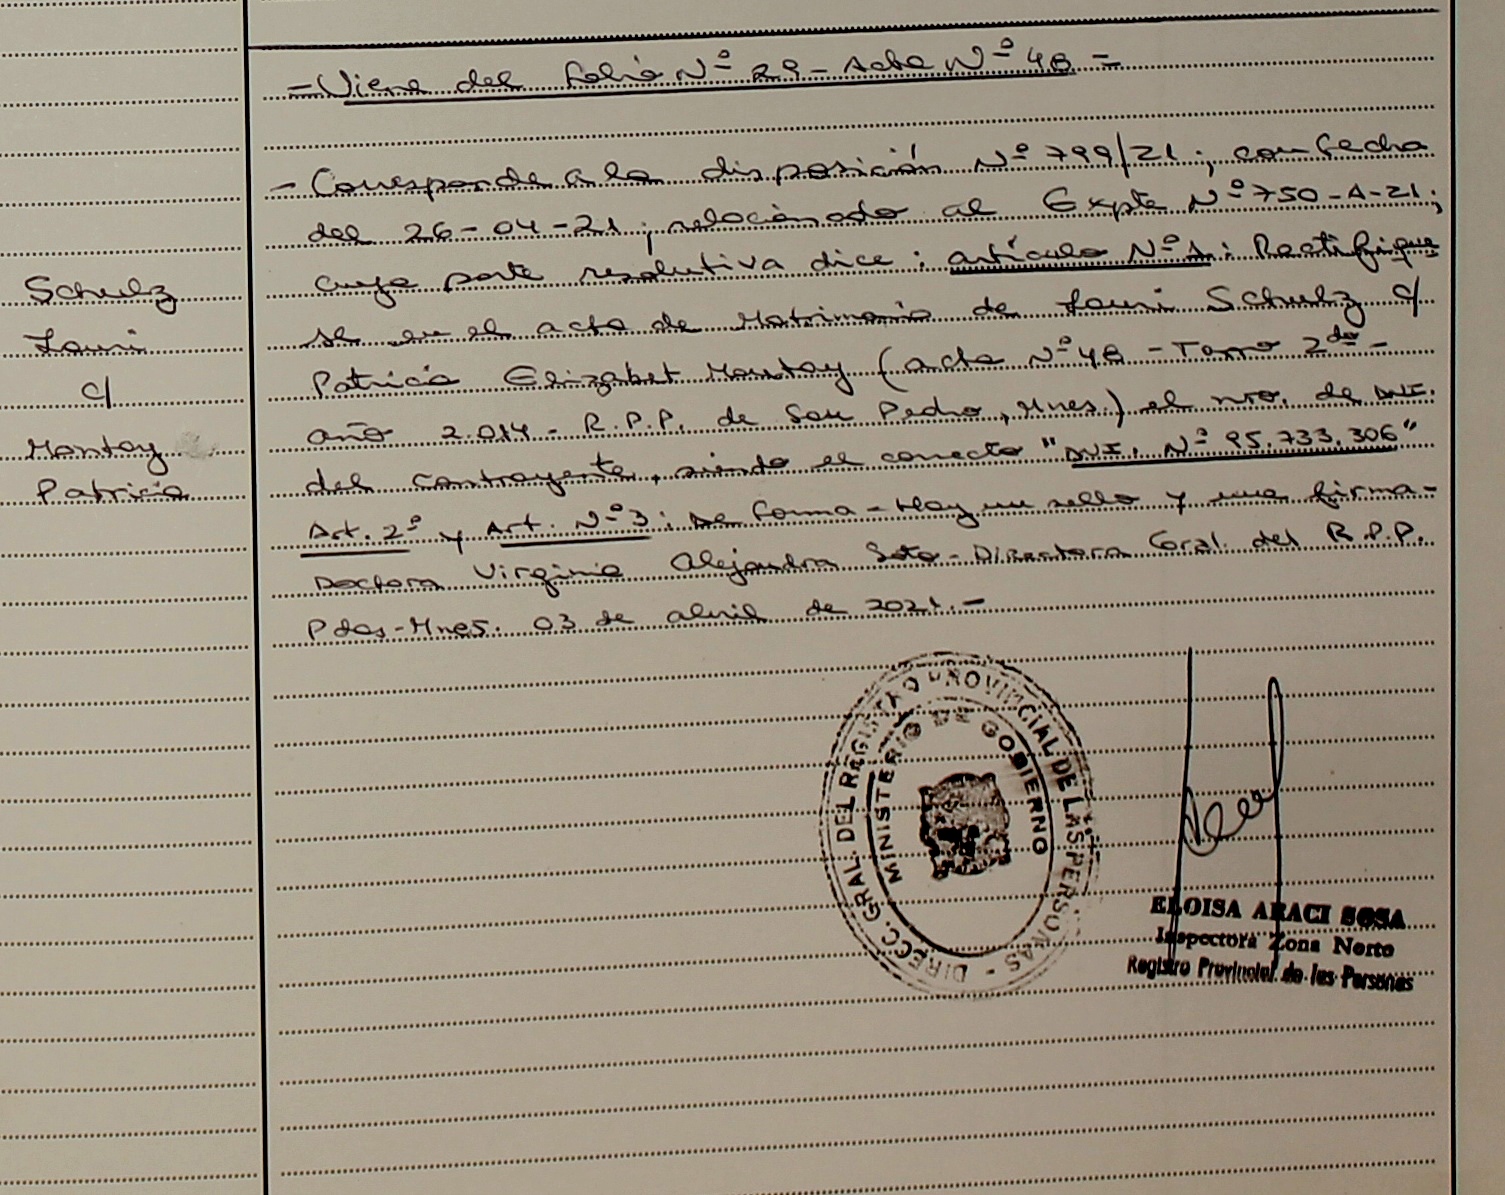 - Viene del folio Nº 29 - Acta Nº 48 =
- Corresponde a la disposición Nº 799/21; con fecha
del 26-04-21; relacionado al Expte Nº 750-A-21;
cuya parte resolutiva dice: artículo Nº 1: Rectifíque
se en el acta de Matrimonio de Lauri Schulz c/
Patricia Elizabet Montoy (acta Nº 48 - Tomo 2do -
año 2.014 - R.P.P. de San Pedro, Mnes.) el nro. de DNI.
del contrayente, siendo el correcto "DNI. Nº 95.733.306"
Art. 2º y Art. Nº 3: De forma - Hay un sello y una firma -
Doctora Virginia Alejandra Soto - Directora Gral. del R.P.P.
Pdas - Mnes. 03 de abril de 2021. -
Schulz
Lauri
c/
Montoy
Patricia
DIRECC. GRAL. DEL REGISTRO PROVINCIAL DE LAS PERSONAS -
MINISTERIO DE GOBIERNO
ELOISA ARACI SOSA
Inspectora Zona Norte
Registro Provincial de las Personas